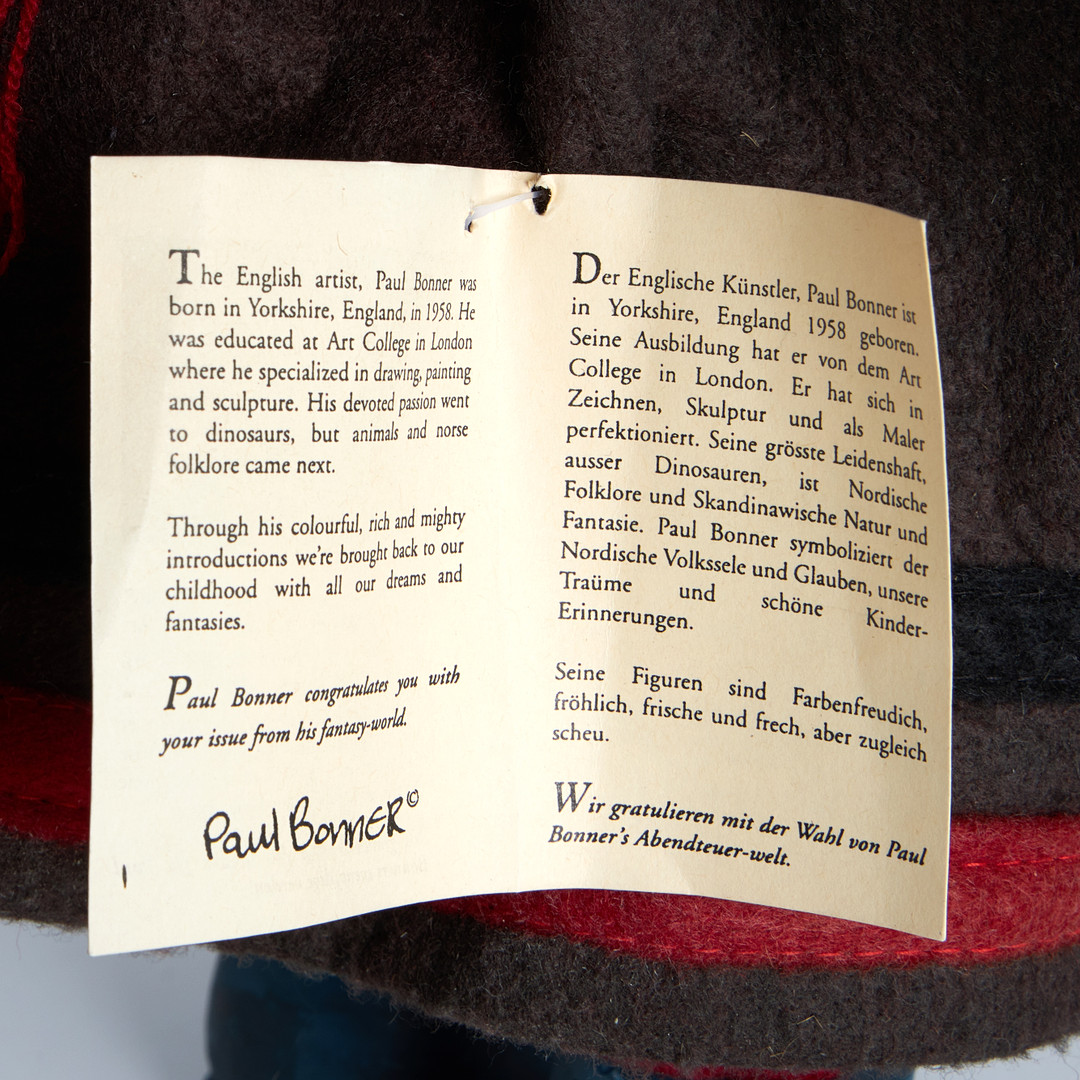 The English artist, Paul Bonner was
born in Yorkshire, England, in 1958. He
was educated at Art College in London
where he specialized in drawing, painting
and sculpture. His devoted passion went
to dinosaurs, but animals and norse
folklore came next.
Through his colourful, rich and mighty
introductions we're brought back to our
childhood with all our dreams and
fantasies.
Paul Bonner congratulates you with
your issue from his fantasy-world.
Paul Bonner©
Der Englische Künstler, Paul Bonner ist
in Yorkshire, England 1958 geboren.
Seine Ausbildung hat er von dem Art
College in London. Er hat sich in
Zeichnen, Skulptur und als Maler
perfektioniert. Seine grösste Leidenshaft,
ausser Dinosauren, ist Nordische
Folklore und Skandinawische Natur und
Fantasie. Paul Bonner symboliziert der
Nordische Volkssele und Glauben, unsere
Traüme und schöne Kinder-
Erinnerungen.
Seine Figuren sind Farbenfreudich,
fröhlich, frische und frech, aber zugleich
scheu.
Wir gratulieren mit der Wahl von Paul
Bonner's Abendteuer-welt.